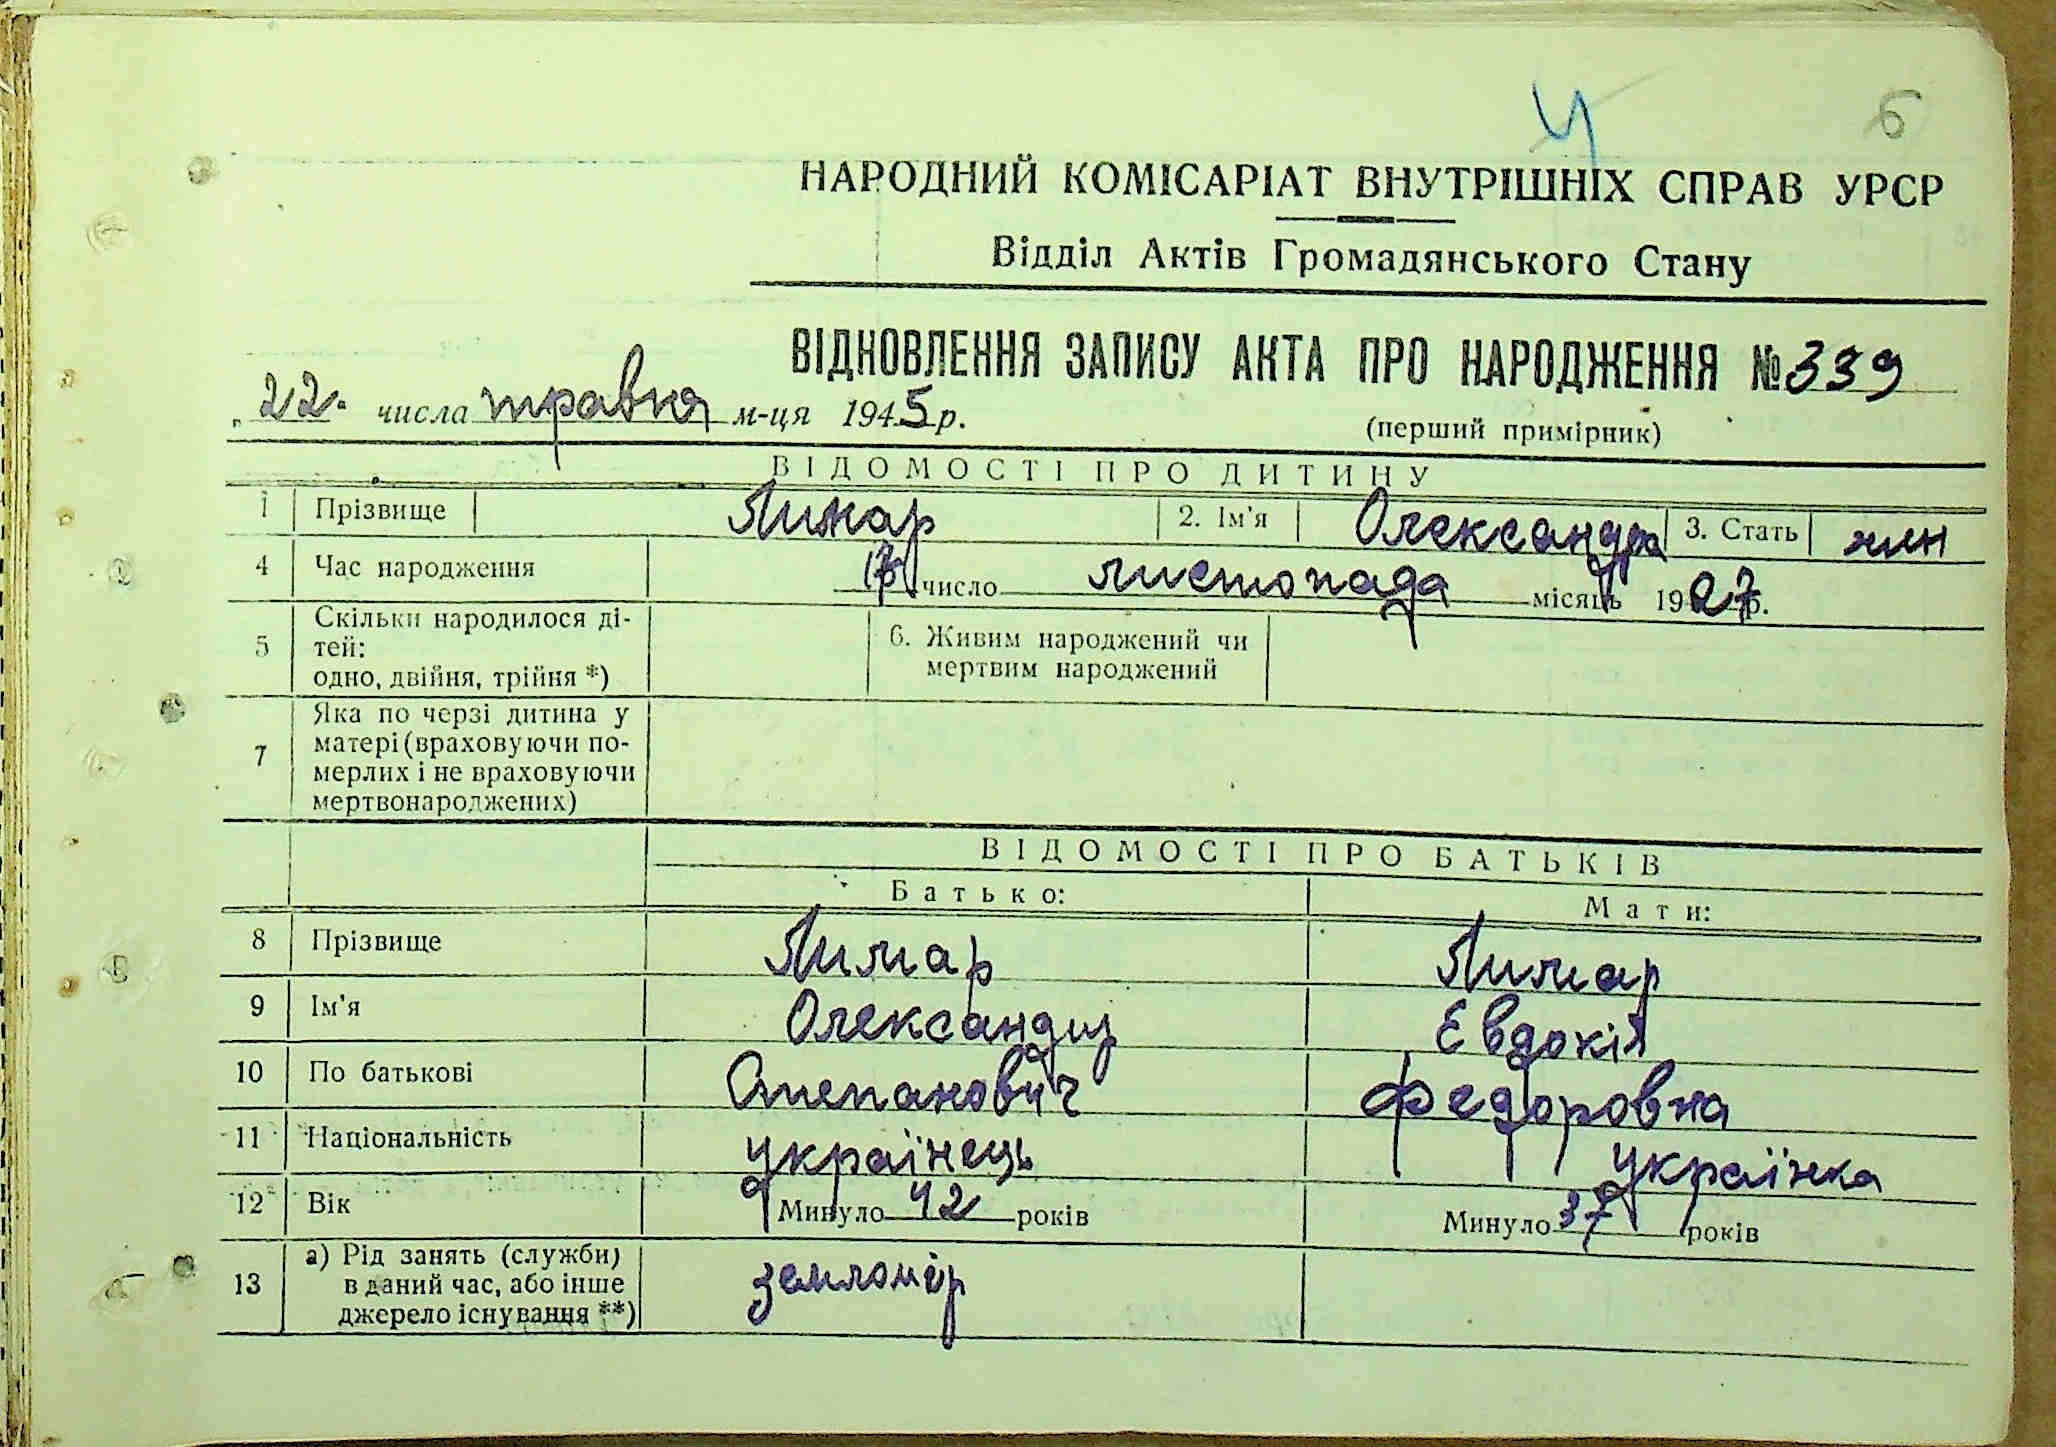 Ч 6
НАРОДНИЙ КОМІСАРІАТ ВНУТРІШНІХ СПРАВ УРСР
Відділ Актів Громадянського Стану
ВІДНОВЛЕННЯ ЗАПИСУ АКТА ПРО НАРОДЖЕННЯ № 339
„ 22. числа травня м-ця 1945 р.
(перший примірник)
ВІДОМОСТІ ПРО ДИТИНУ
1 Прізвище Лимар 2. Ім'я Олександра 3. Стать жін
4 Час народження число листопада місяць 1927 р.
5 Скільки народилося ді-
тей:
одно, двійня, трійня *)
6. Живим народжений чи
мертвим народжений
7 Яка по черзі дитина у
матері (враховуючи по-
мерлих і не враховуючи
мертвонароджених)
ВІДОМОСТІ ПРО БАТЬКІВ
Батько: Мати:
8 Прізвище Лимар Лимар
9 Ім'я Олександр Евдокія
10 По батькові Степанович Федоровна
11 Національність українець українка
12 Вік Минуло 42 років Минуло 37 років
13 а) Рід занять (служби)
в даний час, або інше
джерело існування **)
землемір